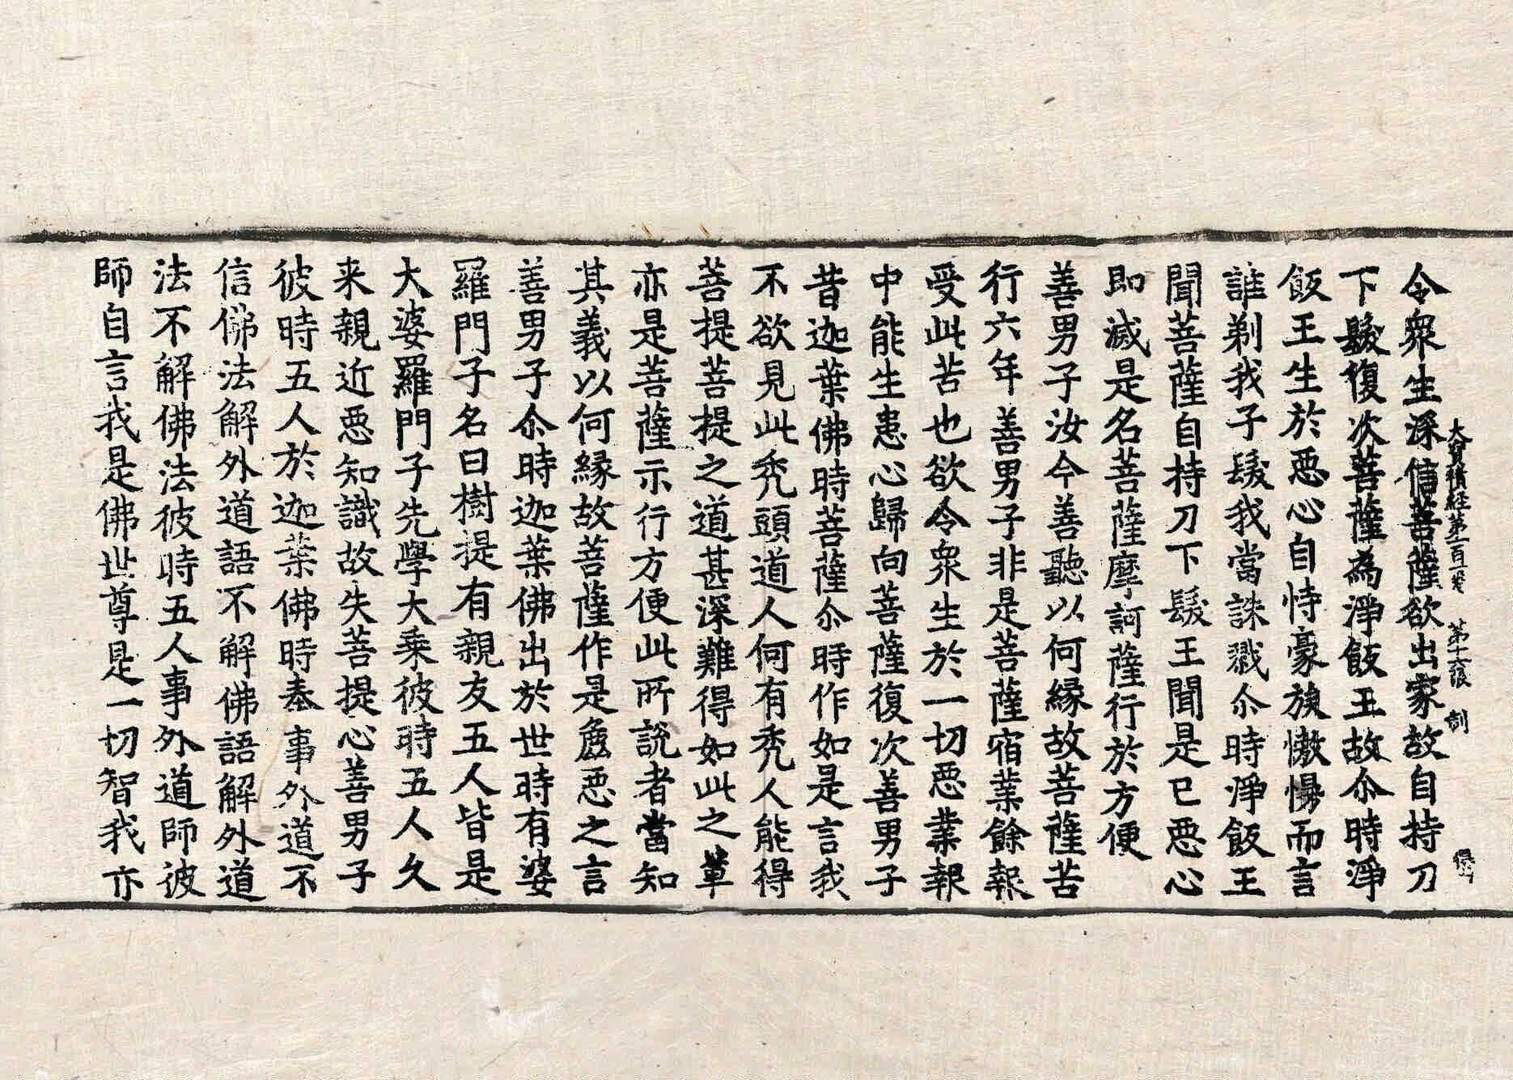 令衆生深信菩薩欲出家故自持刀
大寶積經第一百七卷 第十六張 訓
下髮復次菩薩為淨飯王故尒時淨
飯王生於惡心自恃豪族憿慢而言
誰剃我子髮我當誅戮尒時淨飯王
聞菩薩自持刀下髮王聞是已惡心
即滅是名菩薩摩訶薩行於方便
善男子汝今善聽以何緣故菩薩苦
行六年善男子非是菩薩宿業餘報
受此苦也欲令衆生於一切惡業報
中能生患心歸向菩薩復次善男子
昔迦葉佛時菩薩尒時作如是言我
不欲見此禿頭道人何有禿人能得
菩提菩提之道甚深難得如此之輩
亦是菩薩示行方便此所說者當知
其義以何緣故菩薩作是麁惡之言
善男子尒時迦葉佛出於世時有婆
羅門子名曰樹提有親友五人皆是
大婆羅門子先學大乘彼時五人久
来親近惡知識故失菩提心善男子
彼時五人於迦葉佛時奉事外道不
信佛法解外道語不解佛語解外道
法不解佛法彼時五人事外道師彼
師自言我是佛世尊是一切智我亦